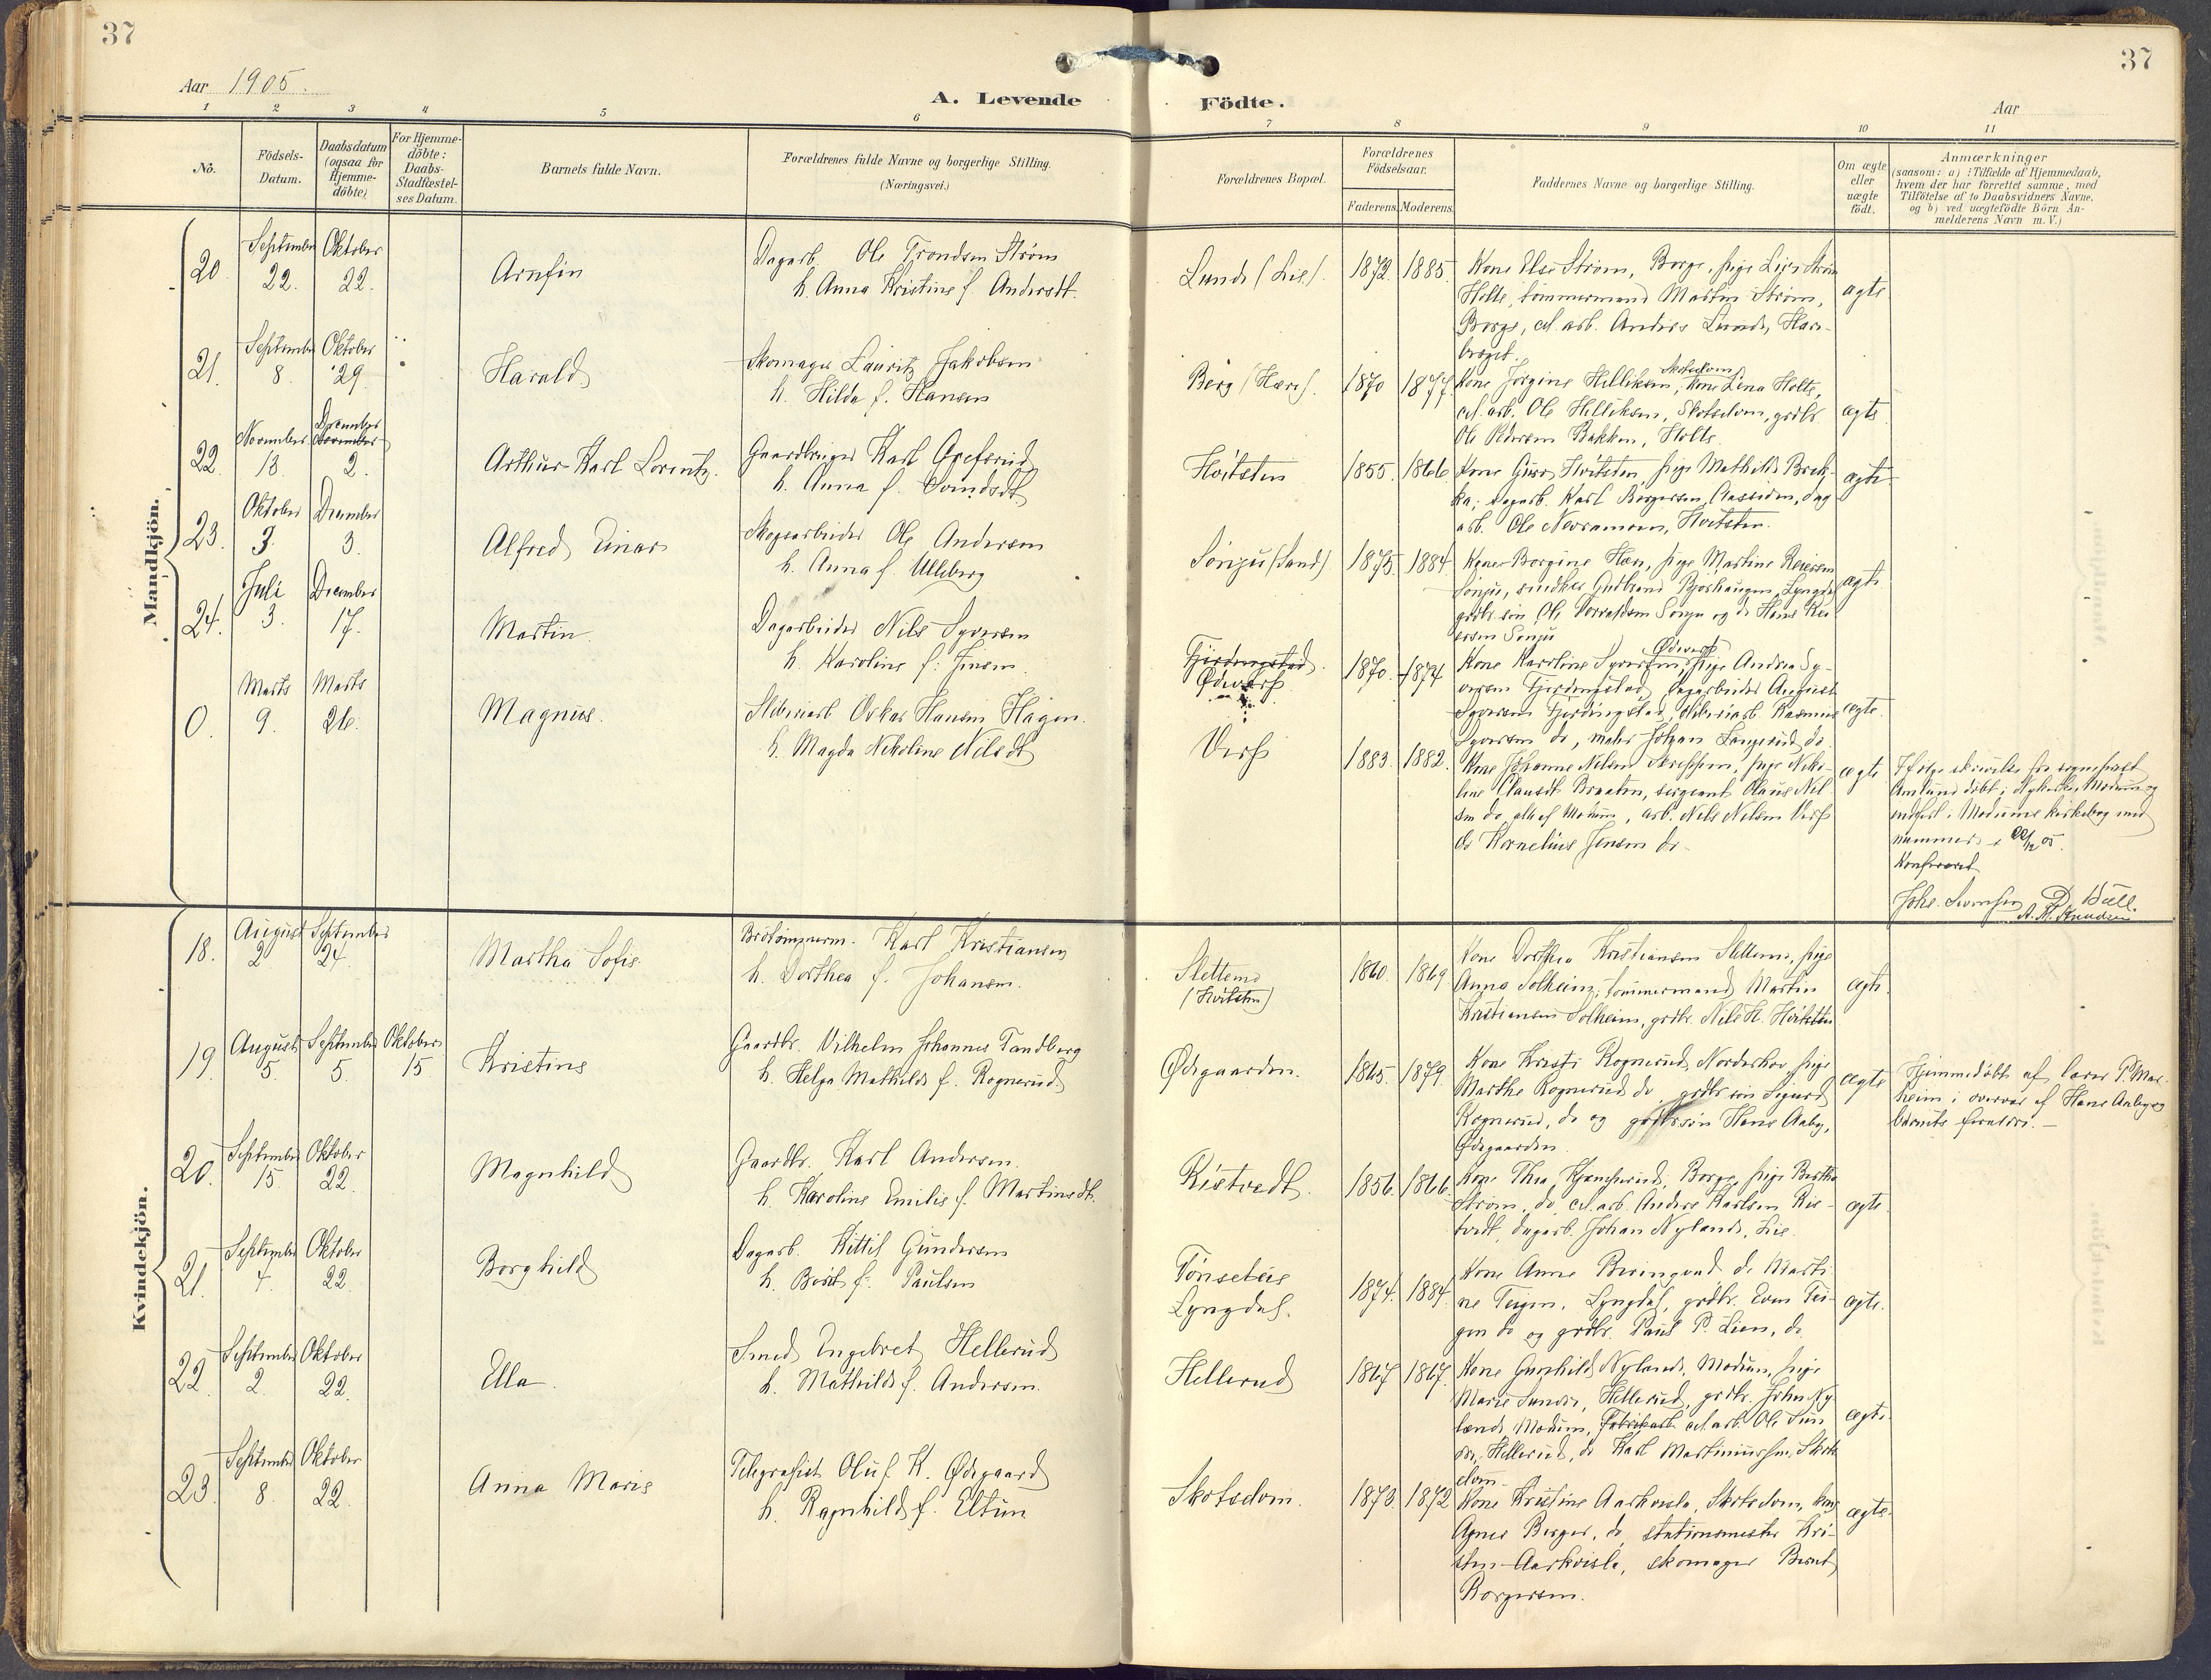 37
37
Aar 1905.
A. Levende
Födte.
Aar
1 2 3 4 5 6 7 8 9 10 11
No.
Födsels-Datum.
Daabsdatum (ogsaa for Hjemme-döbte)
For Hjemme-döbte: Daabs-Stadfæstel-ses Datum.
Barnets fulde Navn.
Forældrenes fulde Navne og borgerlige Stilling.
(Næringsvei.)
Forældrenes Bopæl.
Forældrenes Födselsaar.
Faderens. Moderens.
Faddernes Navne og borgerlige Stilling.
Om ægte eller uægte födt.
Anmærkninger
(saasom: a) i Tilfælde af Hjemmedaab,
hvem der har forrettet samme, med
Tilföielse af to Daabsvidners Navne.
og b) ved uægtefödte Börn An-
melderens Navn m. V.)
Mandkjön.
20. September 22. Oktober 22. Arnfin
Dagarb. Ole Trondsen Strøm
h. Anna Kristine f. Andersdt.
Lunde (Lie). 1872. 1885
Kone Else Strøm, Borge, pige Lise Strøm
Holte, tømmermand Martin Strøm,
Borge, cel. arb. Anders Lunde, Hav-
ægte
21. September 8. Oktober 29. Harald
Skomager Lauritz Jakobsen
h. Hilda f. Hansen
Berg (Hære). 1870 1877.
Kone Jorgine Helliksen, Skotselven, Kone Lina Holte,
cel. arb. Ole Helliksen, Skotselven, grdbr.
Ole Pedersen Bakken, Holte.
ægte
22. November 18 December 2. Arthur Karl Lorentz.
Gaardbruger Karl
h. Anna f. Svendsdt
Hvitsten 1855. 1866
Kone Guro Hvitsten, pige Mathilde Brek-
ka, Dagarb. Karl Borgersen, Aassiden, dag
arb. Ole Hvitsten.
ægte
23. Oktober 3. December 3. Alfred Einar
Skogsarbeider Ole Andersen
h. Anna f. Ulleberg
Sønju (Sand) 1875. 1884
Kone Borgine Hære, pige Martine Reiersen
Sønju, snedker Gudbrand Bjørhaugen, Lyngdal
grdbr. søn Ole Sønju og do Hans Rei
ersen Sønju
ægte
24. Juli 3. December 17. Martin.
Dagarbeider Nils Syversen
h. Karoline f. Jensen.
Fjerdingstad.
Ødverp 1870. 1874
Kone Karoline Syversen, Ødverp, pige Andrea Sy-
versen Fjerdingstad, dagarbeider August
Syversen Fjerdingstad, sliberiarb. Rasmus
Syversen do, maler Johan Langerud do.
ægte.
0. Marts 9. Marts 26. Magnus.
Sliberiarb Oskar Hansen Hagen.
h. Magda Nikoline Nilsdt
Verp 1883. 1882.
Kone Johanne Nilsen, pige Niko-
line Clausdt Braaten, sergeant Olaus Nil-
sen do, alle af Modum, arb. Nils Nilsen Verp
do Kornelius Jensen do.
ægte
Ifølge skrivelse fra sogneprest
Amlund døbt i Nykirke, Modum og
indført i Modums kirkebog med
nummer
Konfereret
D. Bull.
A. M. Knudsen
Kvindekjön.
18. August 2 September 24. Martha Sofie
Karl Kristiansen
h. Dorthea f. Johansen.
Slettemo
(Hvitsten) 1860. 1869
Kone Dorthea Kristiansen Slettemo, pige
Anna Solheim, tømmermand Martin
Kristiansen Solheim, grdbr. Nils H. Hvitsten
ægte.
19. August 5. September 5. Oktober 15. Kristine
Gaardbr. Vilhelm Johannes Tandberg
h. Helga Mathilde f. Rognerud
Ødegaarden. 1865. 1879.
Kone Kristi Rognerud, Norderhov, pige
Marthe Rognerud do, grdbr. søn Sigurd
Rognerud, do og grdbr. søn Hans Aaby,
Ødegaarden.
ægte
Hjemmedøbt af lærer P. Mar-
heim i overvær af Hans Aaby og
barnets forældre. —
20. September 15. Oktober 22. Magnhild
Gaardbr. Karl Andersen.
h. Karoline Emilie f. Martinsdt.
Ristvedt. 1856. 1866.
Kone Thea Kjemperud, Borge, pige Bertha
Strøm, do, cel. arb. Anders Karlsen Ris-
tvedt, dagarb. Johan Nylands, Lie.
ægte.
21. September 4. Oktober 22. Borghild
Dagarb. Kittil Gundersen
h. Borit f. Paulsen
Lyngdal. 1874. 1884.
Kone Anne do Marti
ne Teigen, Lyngdal, grdbr. Even Tei-
gen do og grdbr. Paul P. Lien, do
ægte.
22. September 2. Oktober 22. Ella.
Smed Engebret Hellerud
h. Mathilde f. Andersen.
Hellerud 1867 1867.
Kone Gunhild Nylande, Modum, pige
Marie Sunde, Hellerud, grdbr. John Ny
lande, Modum, Fabrikarb cel. arb. Ole Sun
de, Hellerud, do Karl Martiniussen, Skots
elven
ægte.
23. September 8. Oktober 22. Anna Marie
Telegrafist Oluf K. Ødegaard
h. Ragnhild f. Eltun
Skotselven. 1873. 1872
Kone Kristine Aarkvisla, Skotselven, kone
Agnes Berger, do, stationsmester Kri-
sten Aarkvisla, skomager Bernt
Borgersen.
ægte.